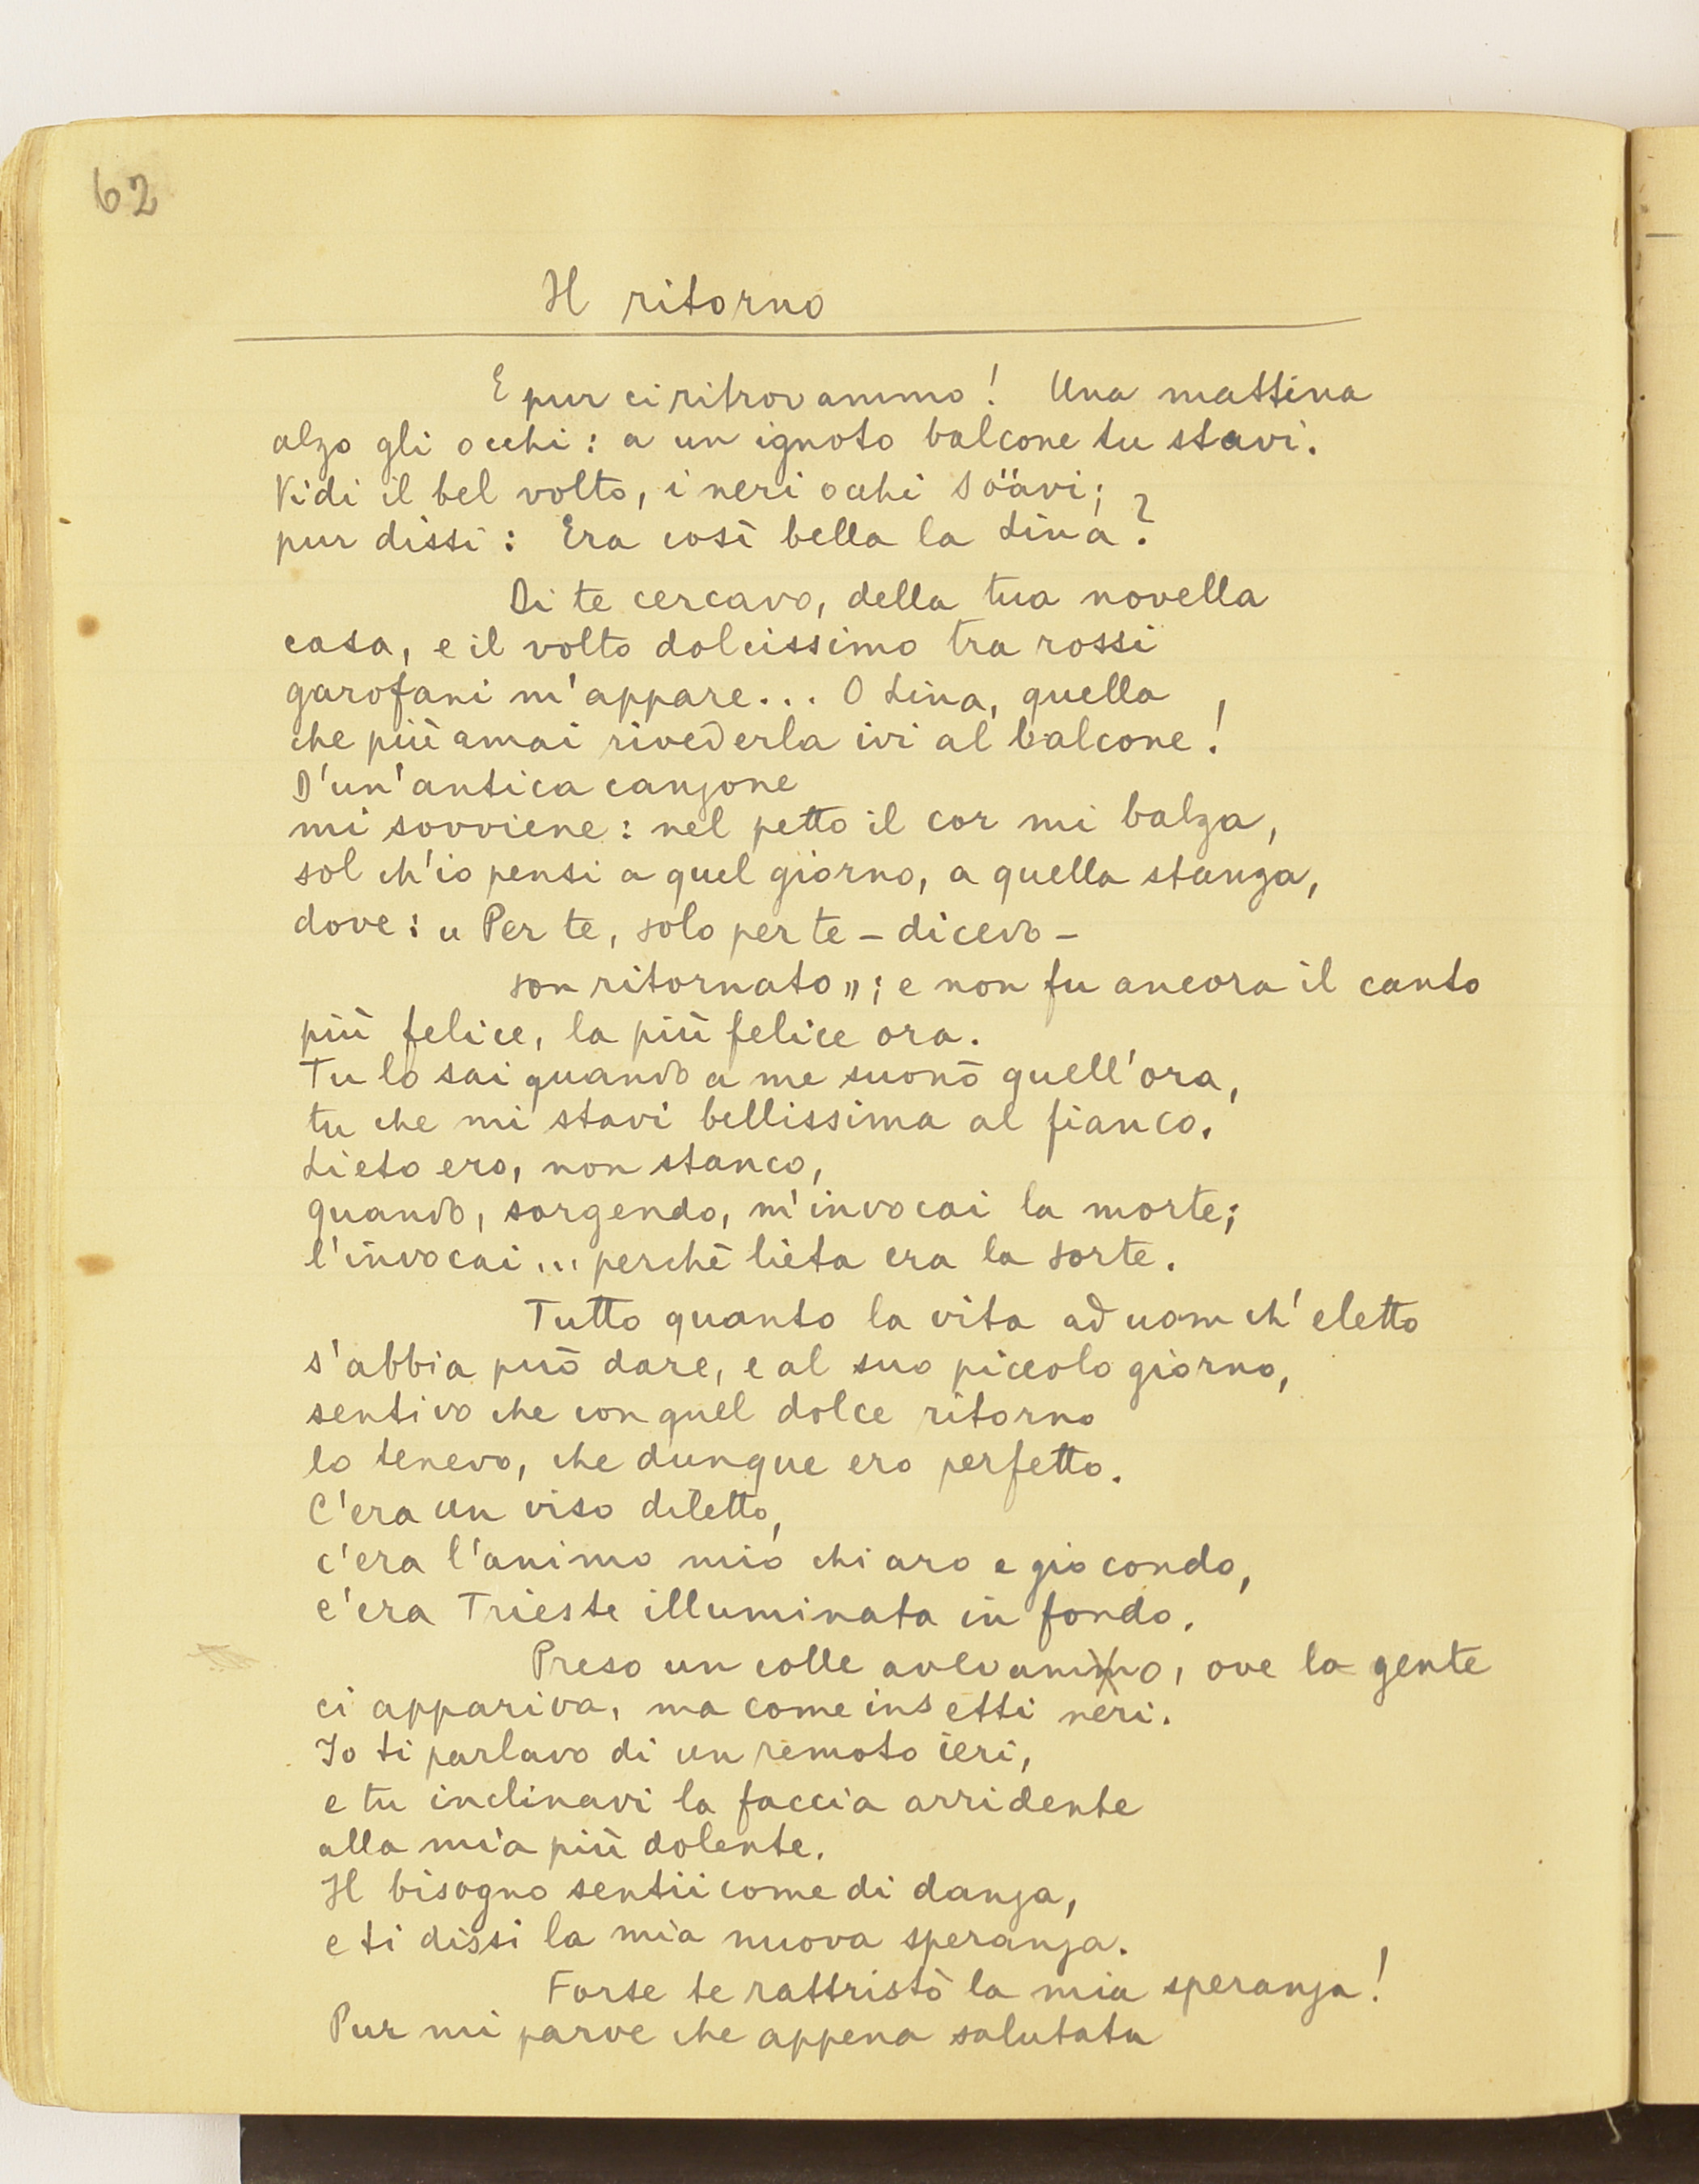 62
Il ritorno
E pur ci ritrovammo! Una mattina
alzo gli occhi: a un ignoto balcone tu stavi.
Vidi il bel volto, i neri occhi söàvi;
pur dissi: Era così bella la Lina?
Di te cercavo, della tua novella
casa, e il volto dolcissimo tra rossi
garofani m'appare... O Lina, quella
che più amai rivederla ivi al balcone!
D'un'antica canzone
mi sovviene: nel petto il cor mi balza,
sol ch'io pensi a quel giorno, a quella stanza,
dove: « Per te, solo per te – dicevo –
son ritornato »; e non fu ancora il canto
più felice, la più felice ora.
Tu lo sai quando a me suonò quell'ora,
tu che mi stavi bellissima al fianco.
Lieto ero, non stanco,
quando, sorgendo, m'invocai la morte;
l'invocai... perchè lieta era la sorte.
Tutto quanto la vita ad uom ch'eletto
s'abbia può dare, e al suo piccolo giorno,
sentivo che con quel dolce ritorno
lo tenevo, che dunque ero perfetto.
C'era un viso diletto,
c'era l'animo mio chiaro e giocondo,
c'era Trieste illuminata in fondo.
Preso un colle avevamo, ove la gente
ci appariva, ma come insetti neri.
Io ti parlavo di un remoto ieri,
e tu inclinavi la faccia arridente
alla mia più dolente.
Il bisogno sentii come di danza,
e ti dissi la mia nuova speranza.
Forse te rattristò la mia speranza!
Pur mi parve che appena salutata